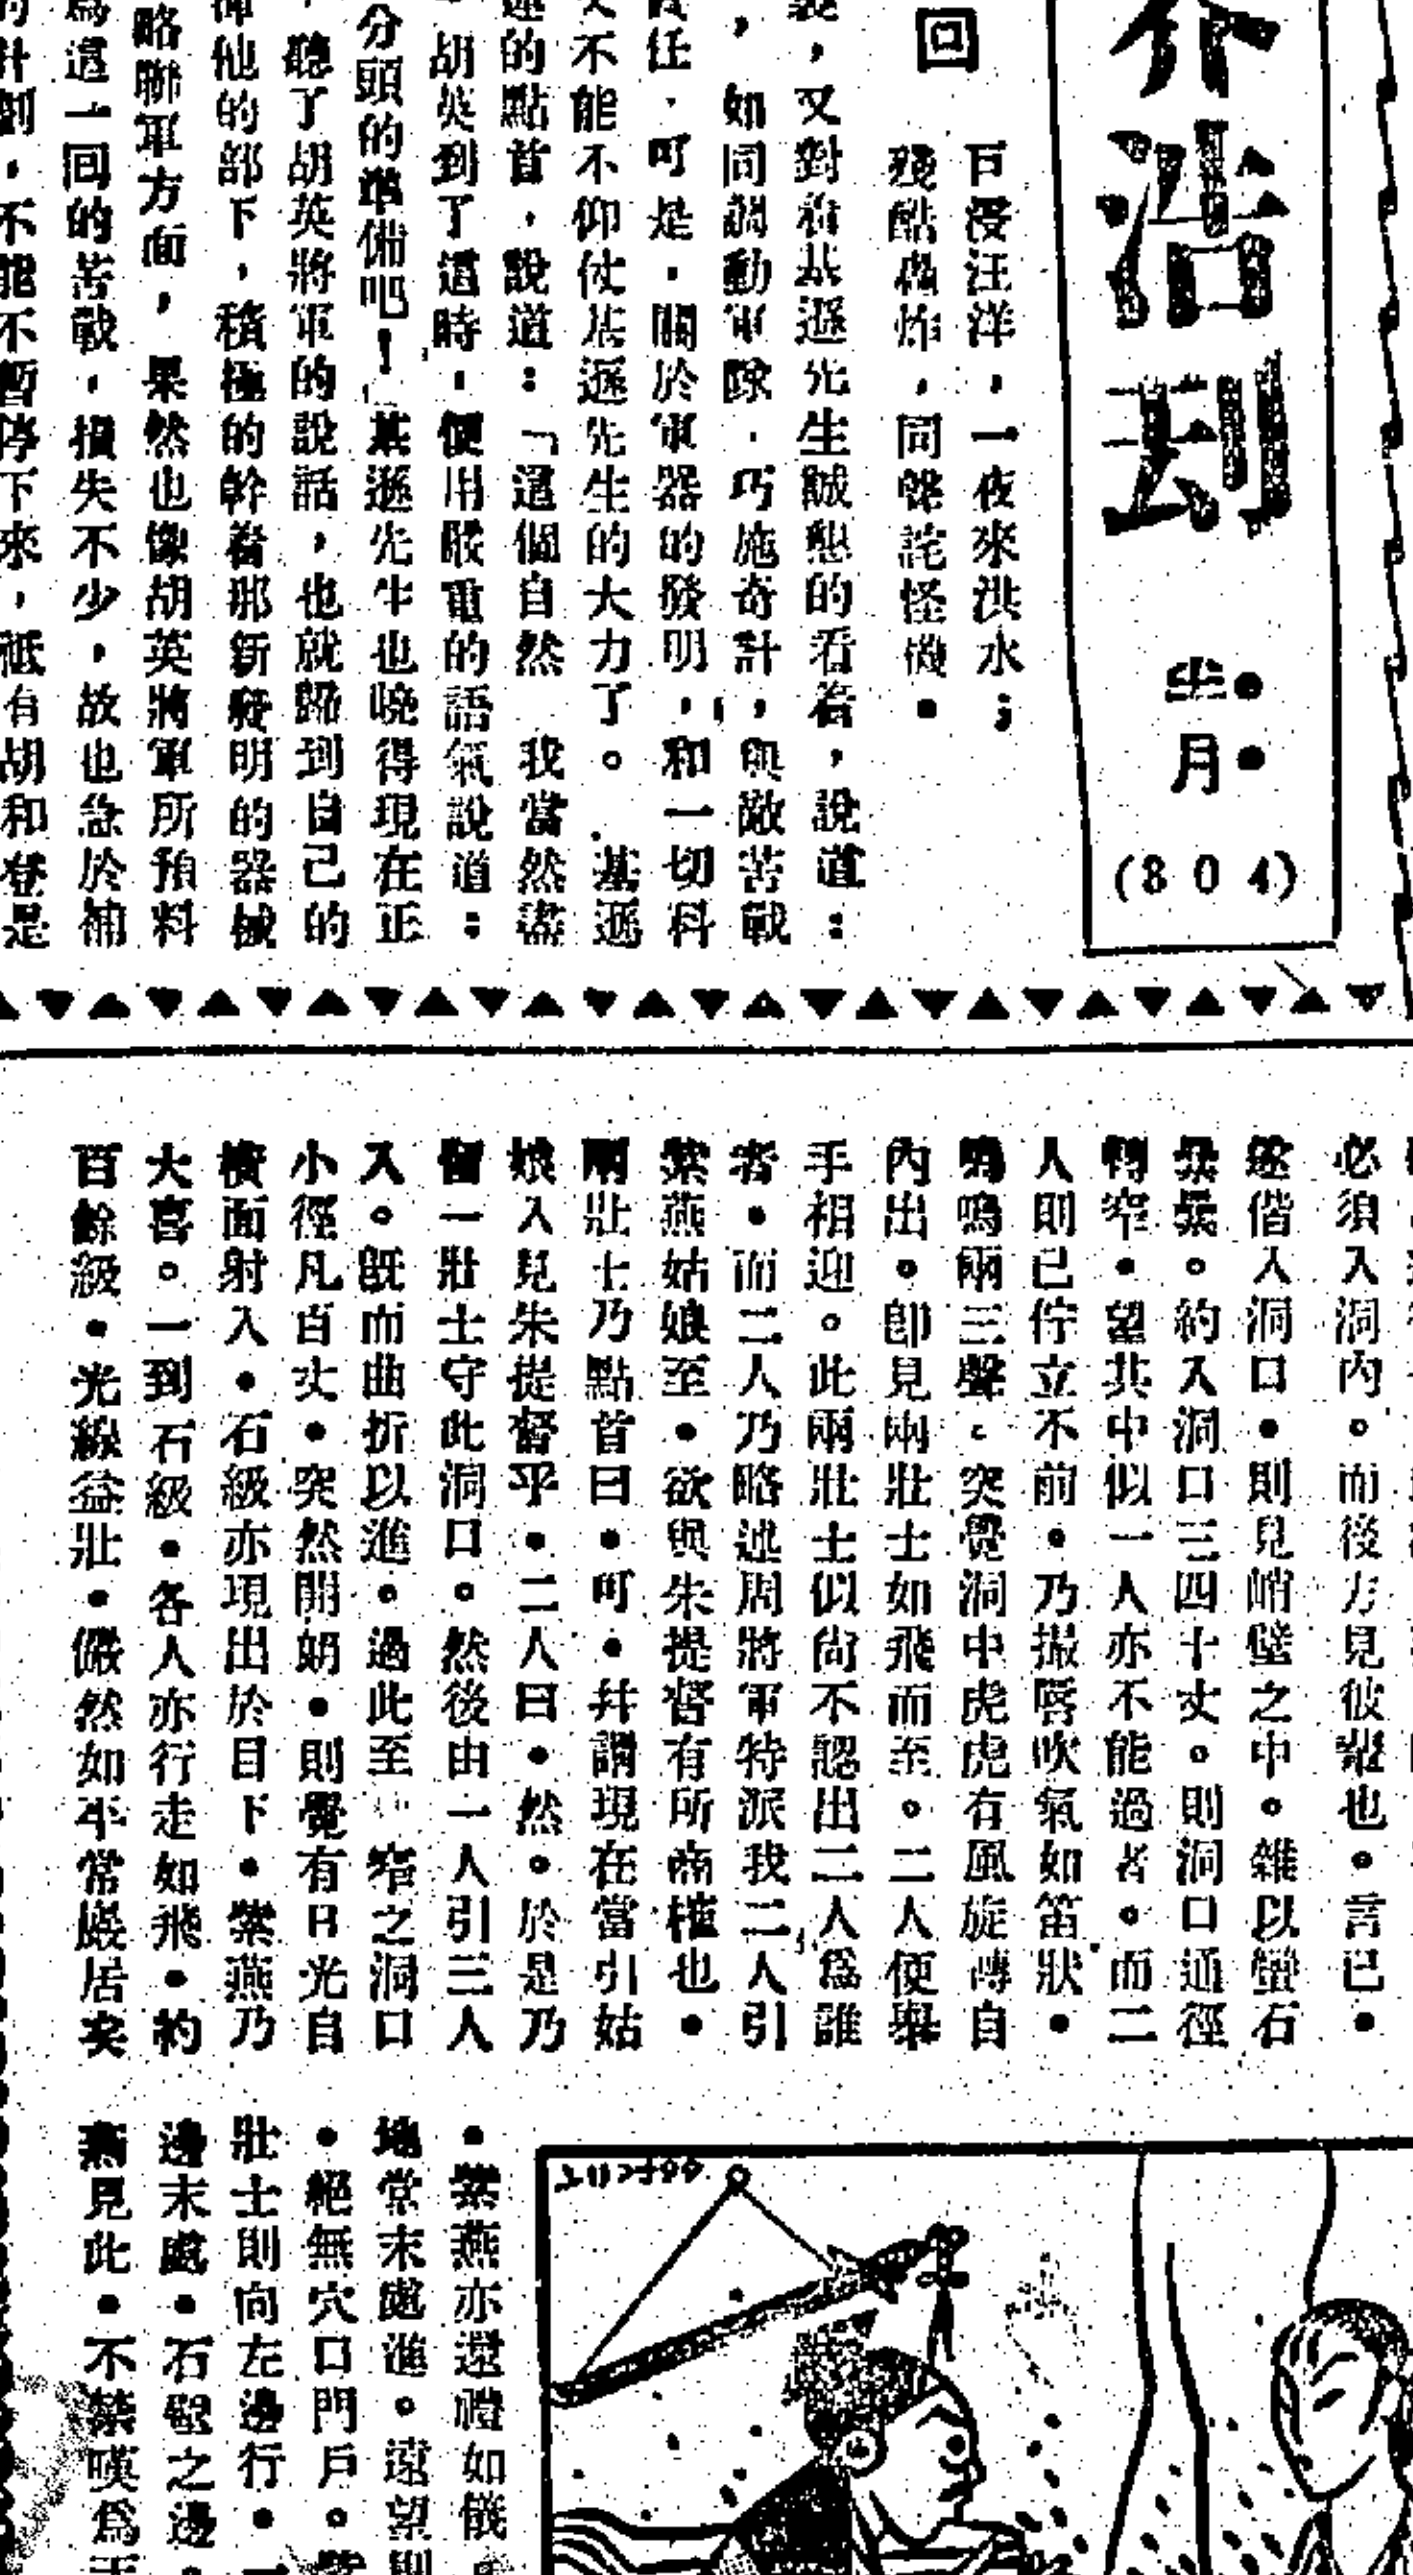 坐月
(804)
回
百浸汪洋，一夜來洪水；
殘酷轟炸，同聲詫怪機．
，又對着基遜先生誠懇的看着，說道：
，如同調動軍隊．巧施奇計，與敵苦戰
任．可是．關於軍器的發明，和一切科
不能不仰仗基遜先生的大力了。基遜
的點首，說道：「這個自然 我當然盡
胡英到了這時，便用嚴重的語氣說道：
分頭的準備吧！基遜先生也曉得現在正
，聽了胡英將軍的說話，也就歸到自己的
他的部下，積極的幹着那新發明的器械
略聯軍方面，果然也像胡英將軍所預料
爲這一回的苦戰，損失不少，故也急於補
計劃，不能不暫停下來，祗有胡和登是
必須入洞內。而後方見彼輩也．言已．
遂偕入洞口．則見峭壁之中。雜以螢石
纍纍。約入洞口三四十丈。則洞口通徑
轉窄．望其中似一人亦不能過者。而二
人則已佇立不前．乃撮唇吹氣如笛狀．
鳴鳴兩三聲。突覺洞中虎虎有風旋轉自
內出．卽見兩壯士如飛而至。二人便舉
手相迎。此兩壯士似尙不認出二人爲誰
者．而二人乃略述周將軍特派我二人引
紫燕姑娘至．欲與朱提督有所商榷也．
兩壯士乃點首曰．可．幷謂現在當引姑
娘入見朱提督乎．二人曰．然。於是乃
留一壯士守此洞口。然後由一人引三人
入。旣而曲折以進．過此至 窄之洞口
小徑凡百丈．突然開朗．則覺有日光自
橫面射入．石級亦現出於目下．紫燕乃
大喜。一到石級．各人亦行走如飛．約
百餘級．光線益壯．儼然如平常巖居矣
．紫燕亦還禮如儀
地堂末處進。遠望則
．絕無穴口門戶。紫
壯士則向左邊行．一
邊末處．石壁之邊．
燕見此．不禁嘆爲